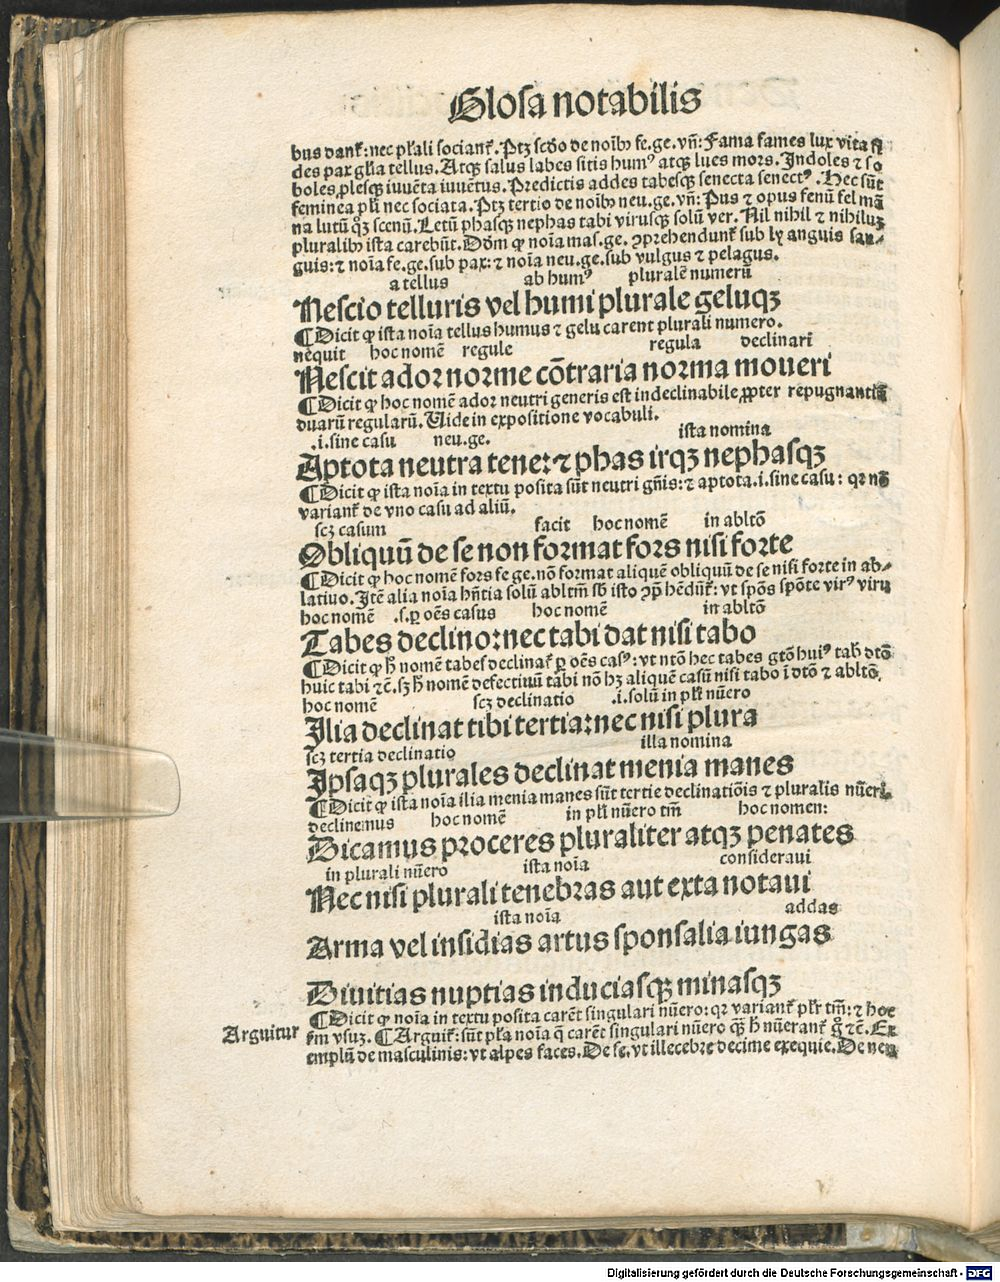 Glosa notabilis
bus danť: nec pľali socianť. Ptꝫ scďo de noĩbꝰ fe.ge. vñ: Fama fames lux vita fi
des pax gľia tellus. Atqꝫ salus labes sitis humꝰ atqꝫ lues mors. Indoles ⁊ so
boles, plesqꝫ iuuẽta iuuẽtus. Predictis addes tabesqꝫ senecta senectꝰ. Hec sũt
feminea pľi nec sociata. Ptꝫ tertio de noĩbꝰ neu.ge. vñ: Pus ⁊ opus fenũ fel mã
na lutũ qꝫ scenũ. Letũ phasqꝫ nephas tabi virusqꝫ solũ ver. Nil nihil ⁊ nihiluꝫ
pluralibꝰ ista carebũt. Dõm ꝙ noĩa mas.ge. ꝯprehendunť sub ly anguis san-
guis: ⁊ noĩa fe.ge. sub pax: ⁊ noĩa neu.ge. sub vulgus ⁊ pelagus.
a tellus ab humꝰ pluralẽ numerũ
Nescio telluris vel humi plurale geluqꝫ
¶Dicit ꝙ ista noĩa tellus humus ⁊ gelu carent plurali numero.
nequit hoc nomẽ regule regula declinari
Nescit ador norme cõtraria norma moueri
¶Dicit ꝙ hoc nomẽ ador neutri generis est indeclinabile ꝓpter repugnantiã
duarũ regularũ. Uide in expositione vocabuli.
.i. sine casu neu.ge. ista nomina
Aptota neutra tene: ⁊ phas irqꝫ nephasqꝫ
¶Dicit ꝙ ista noĩa in textu posita sũt neutri gñis: ⁊ aptota .i. sine casu: qꝛ nõ
varianť de vno casu ad aliũ.
scꝫ casum facit hoc nomẽ in abltõ
Obliquũ de se non format fors nisi forte
¶Dicit ꝙ hoc nomẽ fors fe ge. nõ format aliquẽ obliquũ de se nisi forte in ab-
latiuo. Itẽ alia noĩa hñtia solũ abltm̃ sб isto ꝯp̃hẽdũť: vt spõs spõte virꝰ viru
hoc nomẽ .s. ꝑ oẽs casus hoc nomẽ in abltõ
Tabes declino: nec tabi dat nisi tabo
¶Dicit ꝙ ħ nomẽ tabes declinať ꝑ oẽs casꝰ: vt ntõ hec tabes gtõ huiꝰ tabꝭ dtõ
huic tabi ⁊ẽ. sꝫ ħ nomẽ defectiuũ tabi nõ hꝫ aliquẽ casũ nisi tabo ĩ dtõ ⁊ abltõ.
hoc nomẽ scꝫ declinatio .i. solũ in pľi nũero
Ilia declinat tibi tertia: nec nisi plura
scꝫ tertia declinatio illa nomina
Ipsaqꝫ plurales declinat menia manes
¶Dicit ꝙ ista noĩa ilia menia manes sũt tertie declinatiõis ⁊ pluralis nũeri.
declinemus hoc nomẽ in pľi nũero tm̃ hoc nomen:
Dicamus proceres pluraliter atqꝫ penates
in plurali nũero ista noĩa consideraui
Nec nisi plurali tenebras aut exta notaui
ista noĩa addas
Arma vel insidias artus sponsalia iungas
Diuitias nuptias induciasqꝫ minasqꝫ
¶Dicit ꝙ noĩa in textu posita carẽt singulari nũero: qꝛ varianť pľr tm̃: ⁊ hoc
Arguitur
ẽm vsuꝫ. ¶Arguiť: sũt pľa noĩa q̃ carẽt singulari nũero qꝫ̃ ħ nũeranť g̊ ⁊ẽ. Ex
emplũ de masculinis: vt alpes faces. De fe. vt illecebre decime exequie. De neu
Digitalisierung gefördert durch die Deutsche Forschungsgemeinschaft - DFG